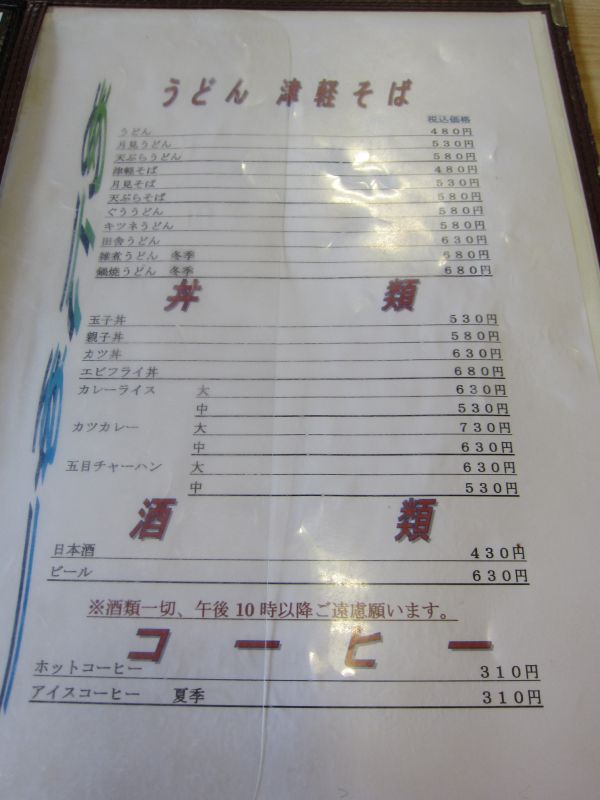 うどん 津軽そば
税込価格
うどん 480円
月見うどん 530円
天ぷらうどん 580円
津軽そば 480円
月見そば 530円
天ぷらそば 580円
ぐううどん 580円
キツネうどん 580円
田舎うどん 630円
雑煮うどん 冬季 680円
鍋焼うどん 冬季 680円
丼 類
玉子丼 530円
親子丼 580円
カツ丼 630円
エビフライ丼 680円
カレーライス 大 630円
中 530円
カツカレー 大 730円
中 630円
五目チャーハン 大 630円
中 530円
酒 類
日本酒 430円
ビール 630円
※酒類一切、午後10時以降ご遠慮願います。
コーヒー
ホットコーヒー 310円
アイスコーヒー 夏季 310円